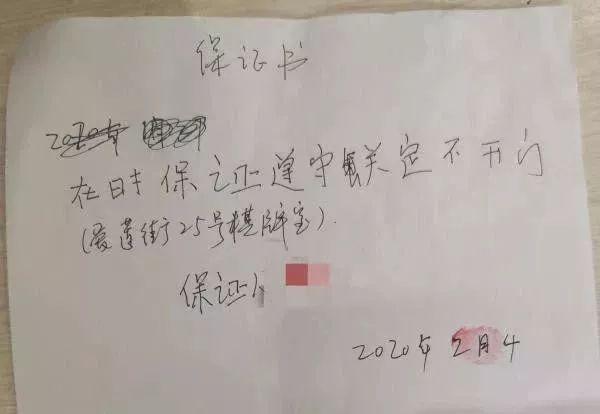 保证书
2020年
在 保证遵守 关定不开门
(爱莲街25号棋牌室).
保证人
2020年2月4